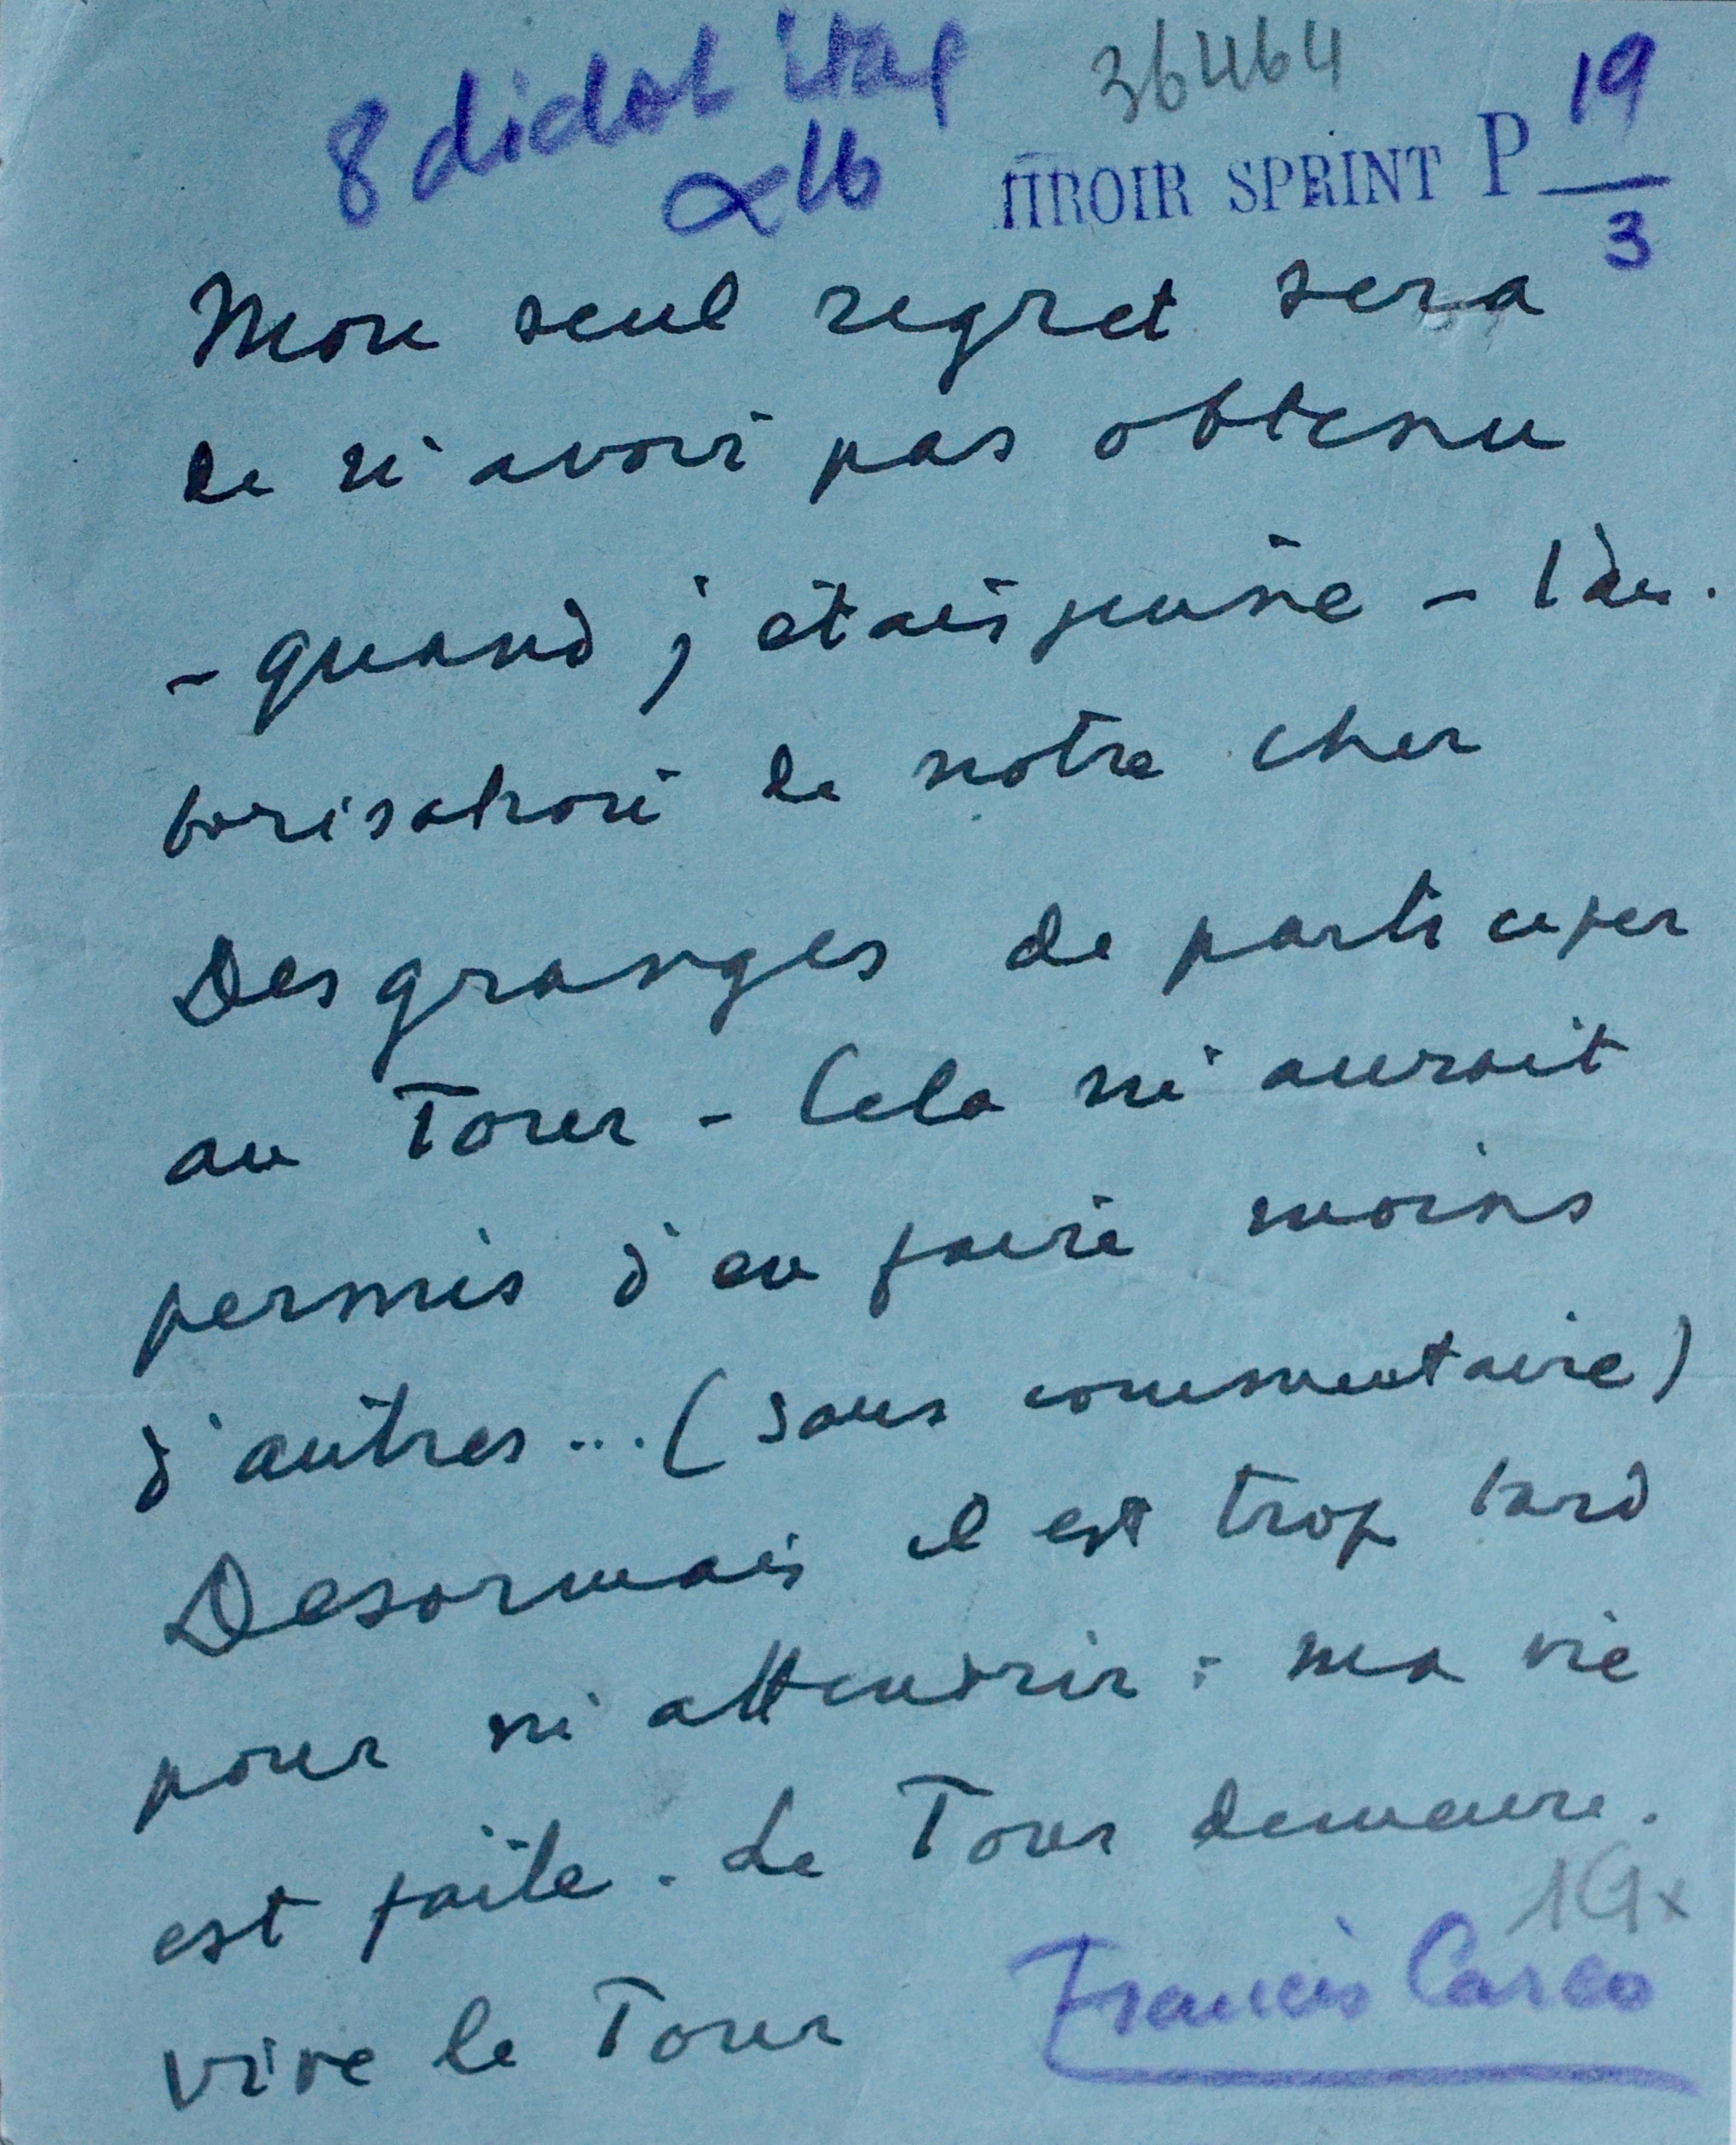 8 didot ital
36464
19
x 16
MIROIR SPRINT P
3
Mon seul regret sera
de n'avoir pas obtenu
- quand j'étais jeune - l'au-
torisation de notre cher
Desgranges de participer
au Tour - Cela m'aurait
permis d'en faire moins
d'autres...(sans commentaire)
Desormais il est trop tard
pour m'attendrir : ma vie
est faite. Le Tour demeure.
1G x
vive le Tour
Francis Carco